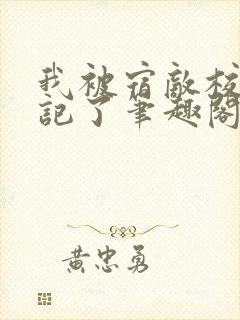 我被宿敌标
记了笔趣阁
黄忠勇